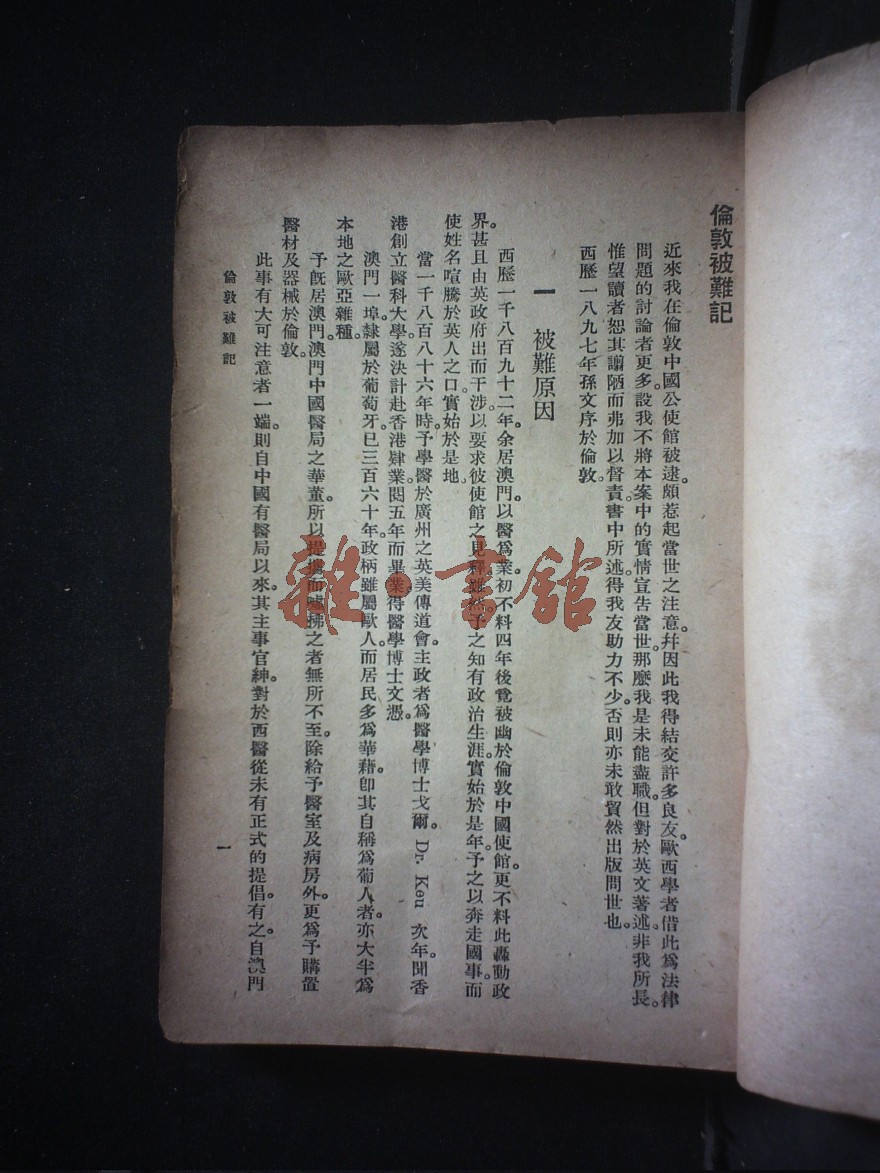 倫敦被難記
近來我在倫敦中國公使館被逮。頗惹起當世之注意。幷因此我得結交許多良友。歐西學者借此爲法律
問題的討論者更多。設我不將本案中的實情宣告當世。那麼我是未能盡職。但對於英文著述。非我所長。
惟望讀者恕其譾陋而弗加以督責。書中所述。得我友助力不少。否則亦未敢貿然出版問世也。
西歷一八九七年孫文序於倫敦。
一 被難原因
西歷一千八百九十二年。余居澳門。以醫爲業。初不料四年後竟被幽於倫敦中國使館。更不料此轟動政
界。甚且由英政府出而干涉以要求彼使館之見釋。雖然。予之知有政治生涯。實始於是年。予之以奔走國事。而
使姓名喧騰於英人之口。實始於是地。
當一千八百八十六年時。予學醫於廣州之英美傳道會。主政者爲醫學博士戈爾。Dr. Keu 次年。聞香
港創立醫科大學。遂決計赴香港肄業。閱五年而畢業。得醫學博士文憑。
澳門一埠。隸屬於葡萄牙。已三百六十年。政柄雖屬歐人。而居民多爲華藉。卽其自稱爲葡人者。亦大半爲
本地之歐亞雜種。
予既居澳門。澳門中國醫局之華董。所以提攜而噓拂之者無所不至。除給予醫室及病房外。更爲予購置
醫材及器械於倫敦。
此事有大可注意者一端。則自中國有醫局以來。其主事官紳。對於西醫從未有正式的提倡。有之。自澳門
倫敦被難記
一
雜·書館